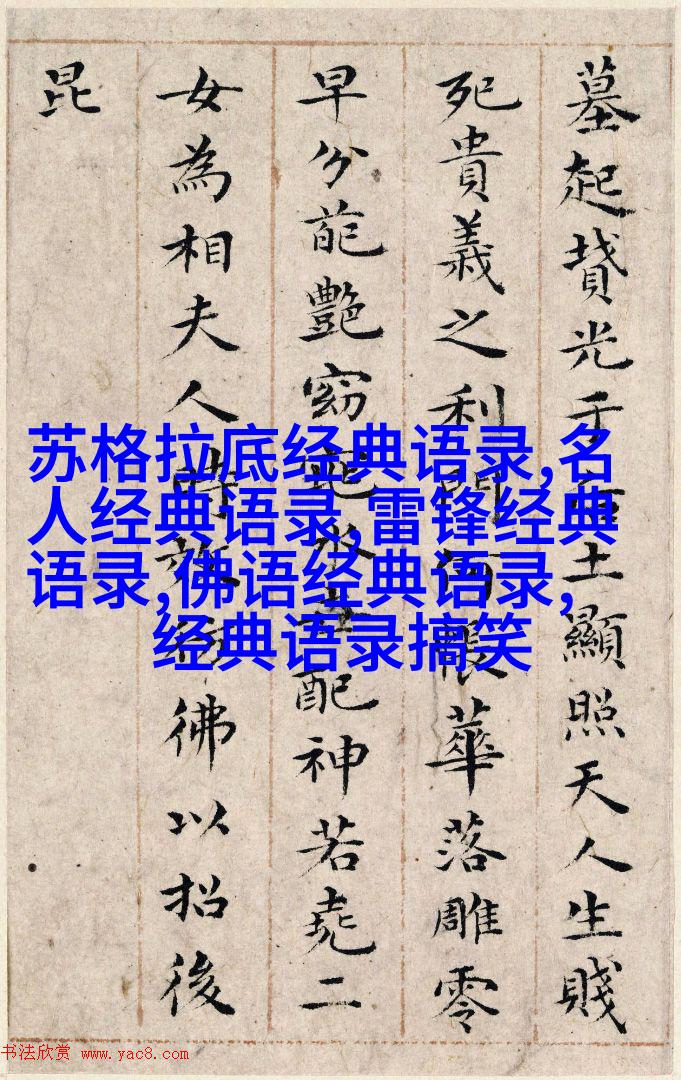 墓起墳光于后土顯照天人生賤
死貴義之利門何悵華落雕零
早分葩艷窈窕永世配神若堯二
女為相夫人時效彷彿以招後
昆
苏格拉底经典语录,名
人经典语录,雷锋经典
语录,佛语经典语录,
经典语录搞笑
书法欣赏 www.yac8.com